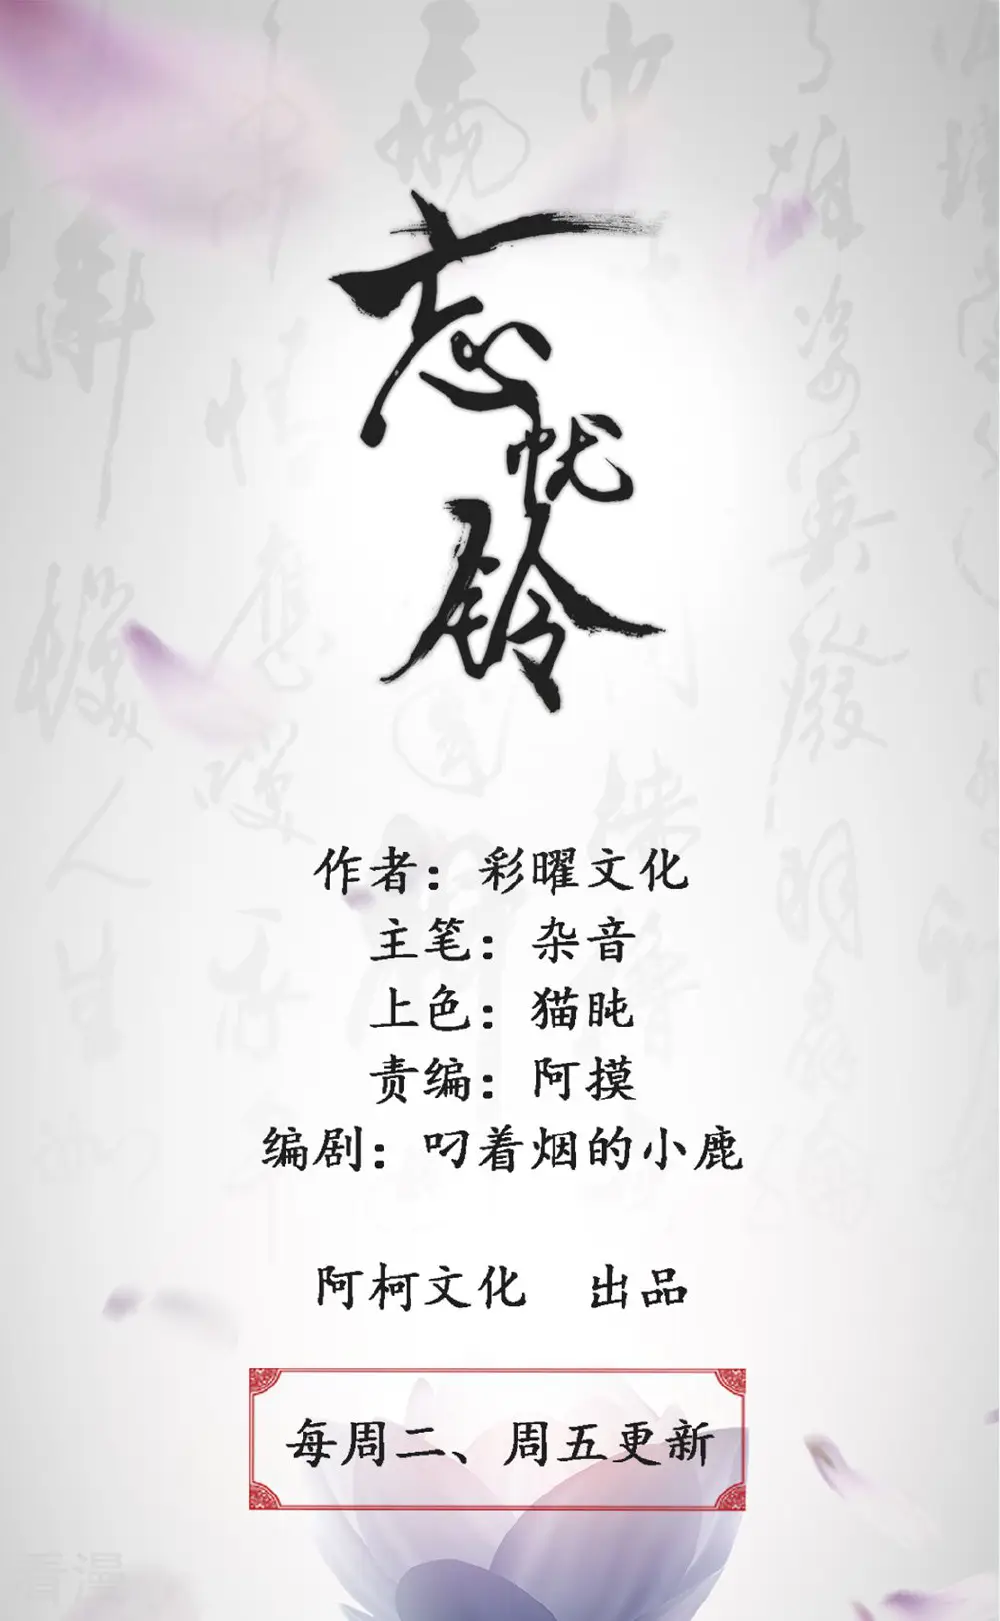 忘忧铃
作者：彩曜文化
主笔：杂音
上色：猫盹
责编：阿摸
编剧：叼着烟的小鹿
阿柯文化 出品
每周二、周五更新
看漫